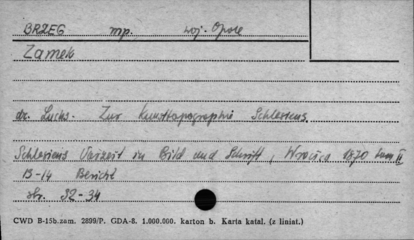 BRZEG mp. woj. Opole
Zamek
dr. Luchs. Zur Kunsttopographie Schlesiens
Schlesiens Vorzeit in Bild und Schrift, Wrocław 1870 tom II
13-14 Bericht
str. 32-34
CWD B-15b.zam. 2899/P. GDA-8. 1.000.000. karton b. Karta katal. (z liniat.)